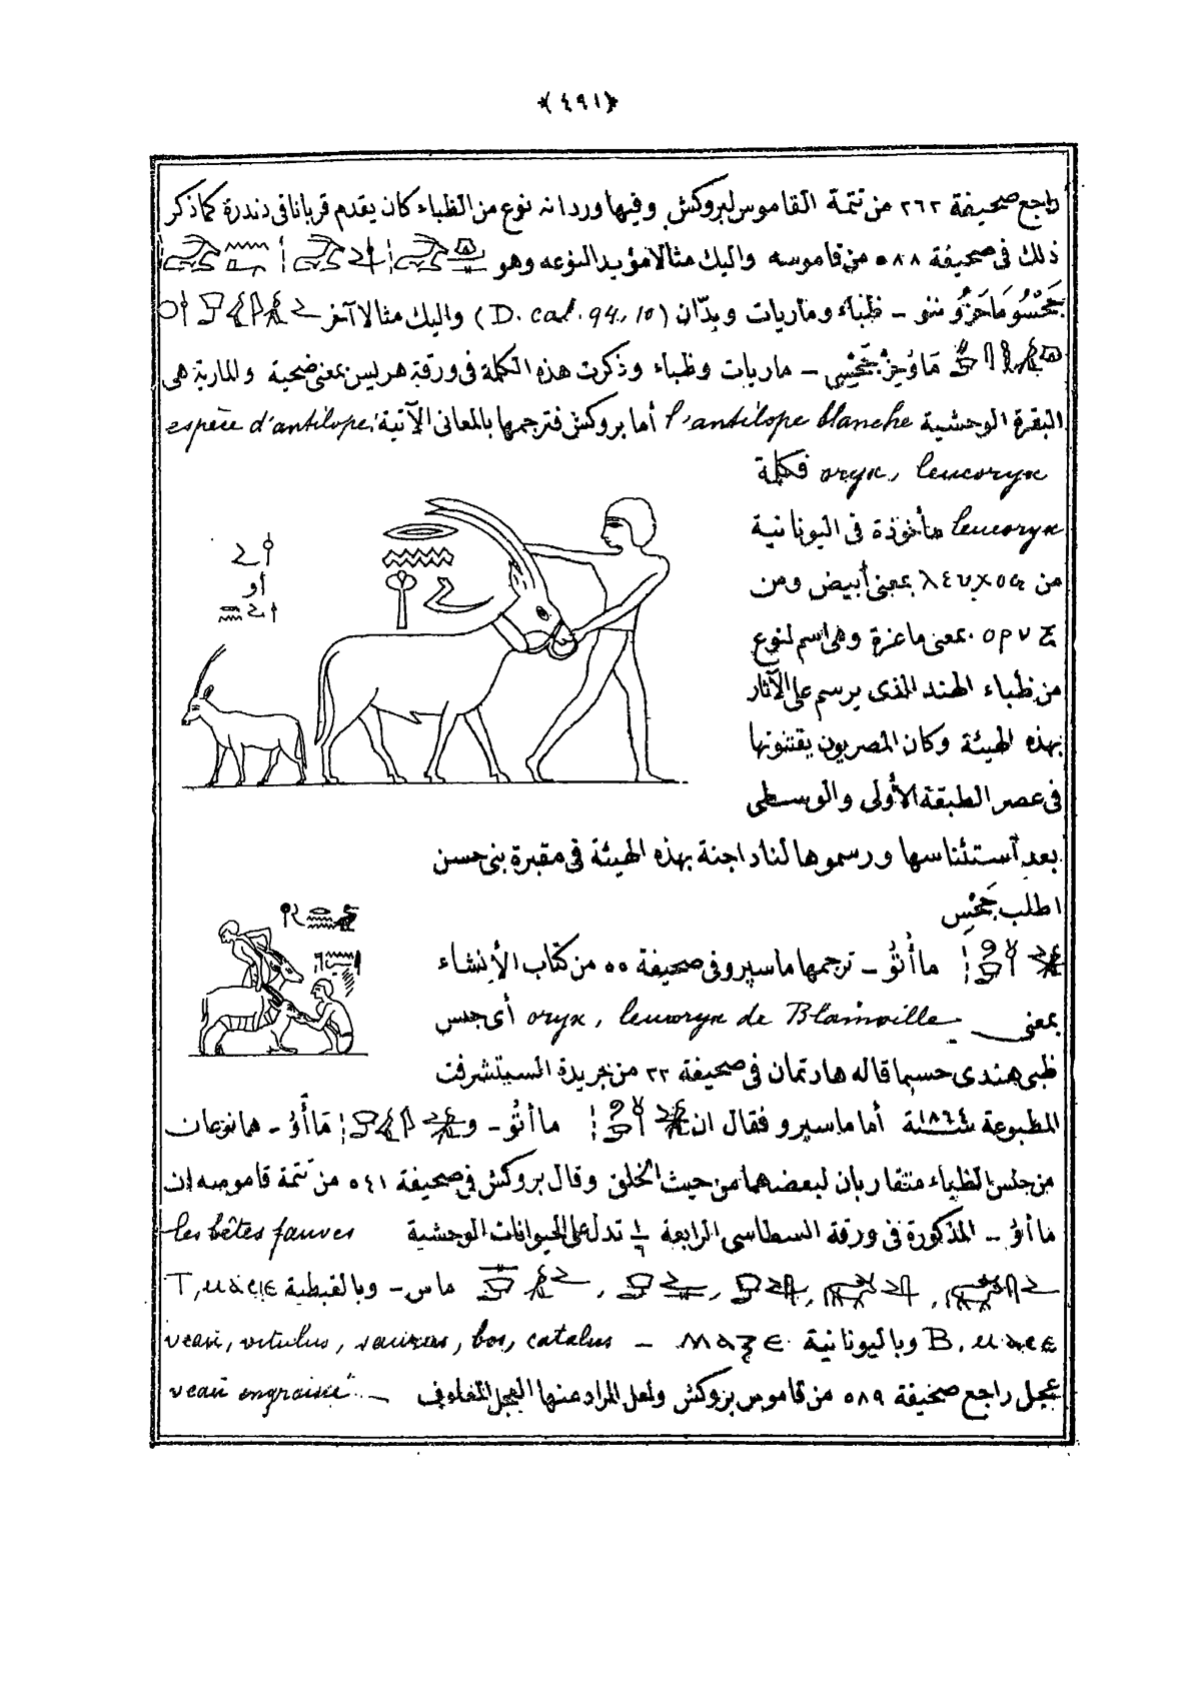 (٤٩١)
راجع صحيفة ٢٦٢ من تتمة القاموس لبروكش وفيها ورد انه نوع من الظباء كان يقدم قربانا فى دندرة كما ذكر
ذلك فى صحيفة ٥٨٨ من قاموسه واليك مثالا مؤيد النوعه وهو
ظباء وماريات وبدّان (D. cal. 94, 10) واليك مثالا آخر
ماريات وظباء وذكرت هذه الكلمة فى ورقة هريس بمعنى ضحية والمارية هى
البقرة الوحشية l'antilope blanche أما بروكش فترجمها بالمعانى الآتية: espèce d'antilope
oryx, leucoryx فكلمة
leucoryx مأخوذة فى اليونانية
من λευχοσ بمعنى أبيض ومن
ορυξ بمعنى ماعزة وهى اسم لنوع
من ظباء الهند الذى يرسم على الآثار
بهذه الهيئة وكان المصريون يقتنونها
فى عصر الطبقة الأولى والوسطى
أو
بعد آستئناسها ورسموها لنا داجنة بهذه الهيئة فى مقبرة بنى حسن
اطلب
ماأنُو - ترجمها ماسپرو فى صحيفة ٥٥ من كتاب الأنشاء
بمعنى oryx, leucoryx de Blainville أى جنس
ظبى هندى حسبما قاله هارتمان فى صحيفة ٢٢ من جريدة المستشرقت
المطبوعة سنة ١٨٦٤ أما ماسپرو فقال ان ماأنُو - و مَاأُوُ - هما نوعان
من جنس الظباء متقاربان لبعضهما من حيث الخلق وقال بروكش فى صحيفة ٥٤١ من تتمة قاموسه ان
ماأوُ - المذكورة فى ورقة السطاسى الرابعة تدل على الحيوانات الوحشية les bêtes fauves
ماس - وبالقبطية T, ⲙⲁⲥⲉ
B, ⲙⲁⲥⲉ وبااليونانية ⲙⲁⲝⲉ - veau, vitulus, taurus, bos, catulus
عجل راجع صحيفة ٥٨٩ من قاموس بروكش ولعل المراد منها العجل المعلوف - veau engraissé